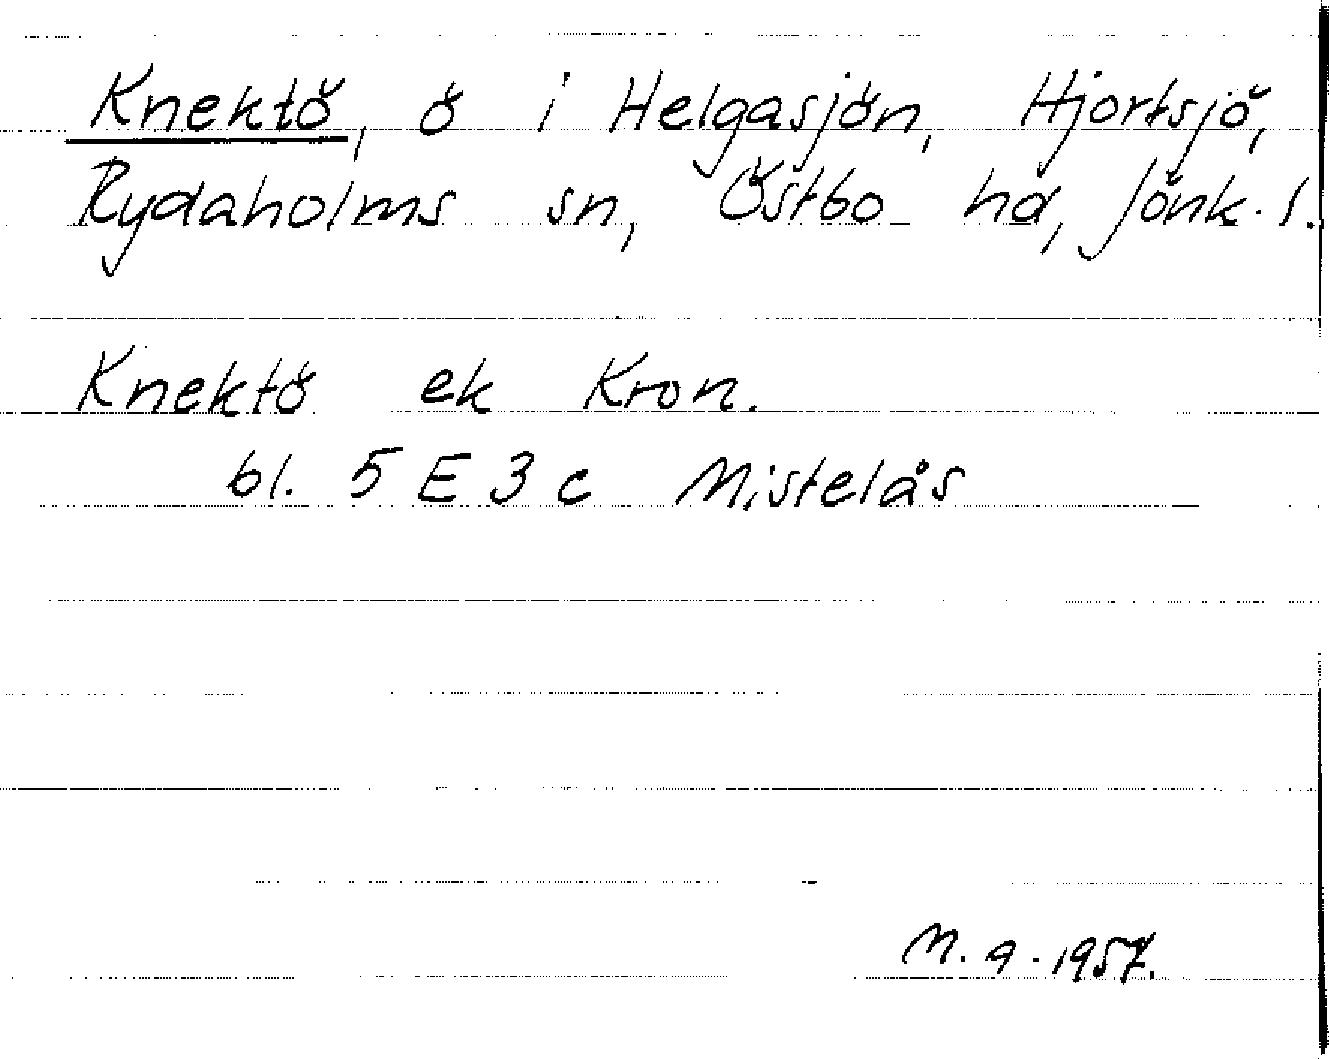 Knektö, ö i Helgasjön, Hjortsjö,
Rydaholms sn, Östbo hd, Jönk. l.
Knektö ek Kron.
bl. 5 E 3 c Mistelås
M. a. 1957.